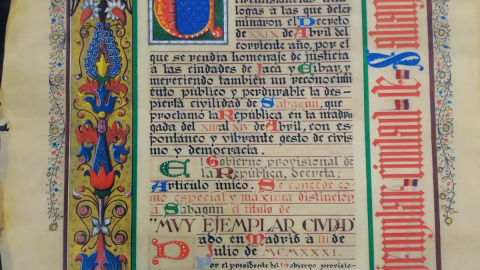 circunstancias aná-
logas a las que deter-
minaron el Decreto
de XXIX de Abril del
corriente año, por el
que se rendía homenaje de justicia
a las ciudades de Jaca y Éibar, y
mereciendo también un reconoci-
ento público y perdurable la des-
pierta civilidad de Sahagún, que
proclamó la República en la madru-
gada del XIII al XIV de Abril, con es-
pontáneo y vibrante gesto de civis-
mo y democracia.
El Gobierno provisional de
la República, decreta:
Artículo único. Se concede co-
mo especial y maxima distinción
a Sahagún el título de
"MUY EJEMPLAR CIUDAD"
Dado en Madrid a III de
Julio de MCMXXXI.
Por el presidente del Gobierno proviso-